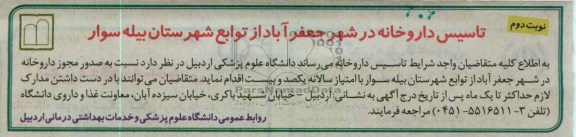 نوبت دوم
تاسیس داروخانه در شهر جعفرآباد از توابع شهرستان بیله سوار
به اطلاع کلیه متقاضیان واجد شرایط تاسیس داروخانه می رساند دانشگاه علوم پزشکی اردبیل در نظر دارد نسبت به صدور مجوز داروخانه
در شهر جعفرآباد از توابع شهرستان بیله سوار با امتیاز سالانه یکصد و بیست اقدام نماید. متقاضیان می توانند با در دست داشتن مدارک
لازم حداکثر تا یک ماه پس از تاریخ درج آگهی به نشانی: اردبیل - خیابان شهید باکری، خیابان سیزده آبان، معاونت غذا و داروی دانشگاه
(تلفن ۳-۵۵۱۶۵۱۱-۰۴۵۱) مراجعه فرمایند.
روابط عمومی دانشگاه علوم پزشکی و خدمات بهداشتی درمانی اردبیل